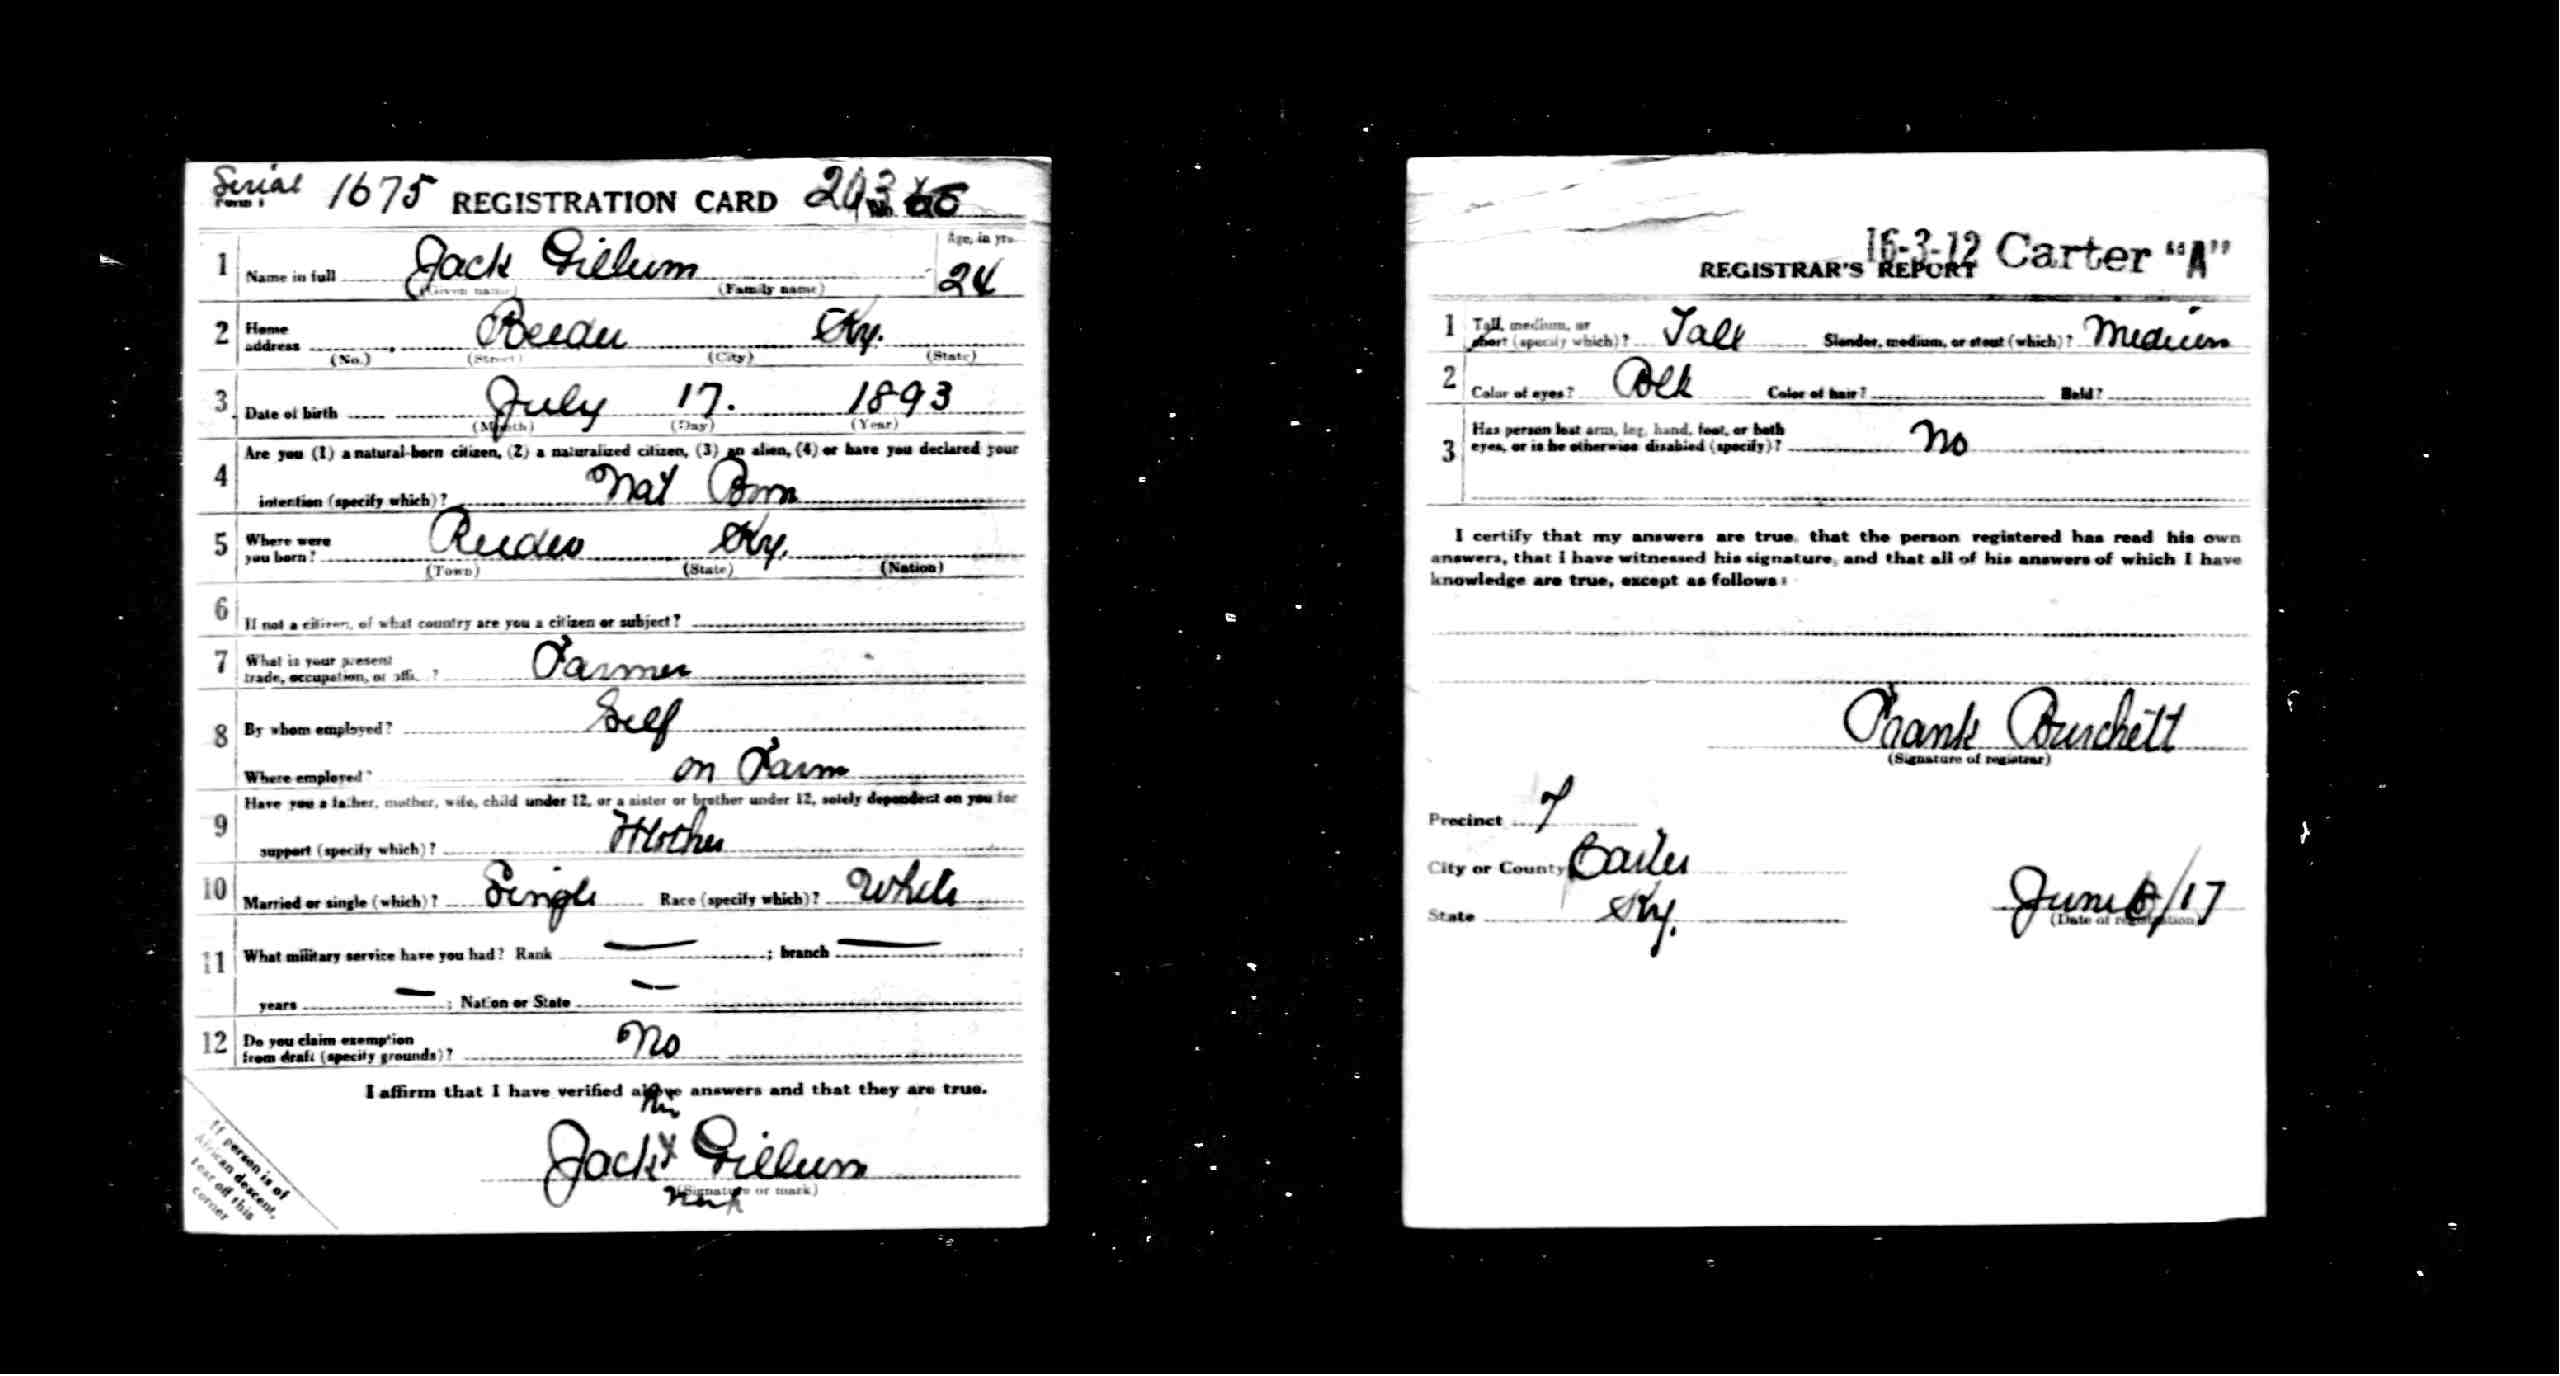 Serial 1675 REGISTRATION CARD 243
Form 1
1 Name in full Jack Gillum Age, in yrs. 24
(Given name) (Family name)
2 Home address Reeder Ky.
(No.) (Street) (City) (State)
3 Date of birth July 17. 1893
(Month) (Day) (Year)
4 Are you (1) a natural-born citizen, (2) a naturalized citizen, (3) an alien, (4) or have you declared your
intention (specify which)? Nat Born
5 Where were
you born? Reeder Ky.
(Town) (State) (Nation)
6 If not a citizen, of what country are you a citizen or subject?
7 What is your present
trade, occupation, or office? Farmer
8 By whom employed? Self
Where employed? on Farm
9 Have you a father, mother, wife, child under 12, or a sister or brother under 12, solely dependent on you for
support (specify which)? Mother
10 Married or single (which)? Single Race (specify which)? White
11 What military service have you had? Rank — ; branch — ;
years — ; Nation or State —
12 Do you claim exemption
from draft (specify grounds)? No
I affirm that I have verified above answers and that they are true.
his
Jack x Gillum
(Signature or mark)
mark
If person is of
African descent,
tear off this
corner
16-3-12 Carter "A"
REGISTRAR'S REPORT
1 Tall, medium, or
short (specify which)? Tall Slender, medium, or stout (which)? Medium
2 Color of eyes? Blk Color of hair? Bald?
3 Has person lost arm, leg, hand, foot, or both
eyes, or is he otherwise disabled (specify)? No
I certify that my answers are true, that the person registered has read his own
answers, that I have witnessed his signature, and that all of his answers of which I have
knowledge are true, except as follows:
Frank Burchett
(Signature of registrar)
Precinct 7
City or County Carter
State Ky.
June /17
(Date of registration)